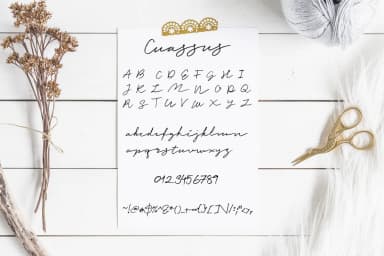 Cuassus
A B C D E F G H I
J K L M N O P Q
R S T U V W X Y Z
abcdefghijklmn
opqrstuvwxyz
0123456789